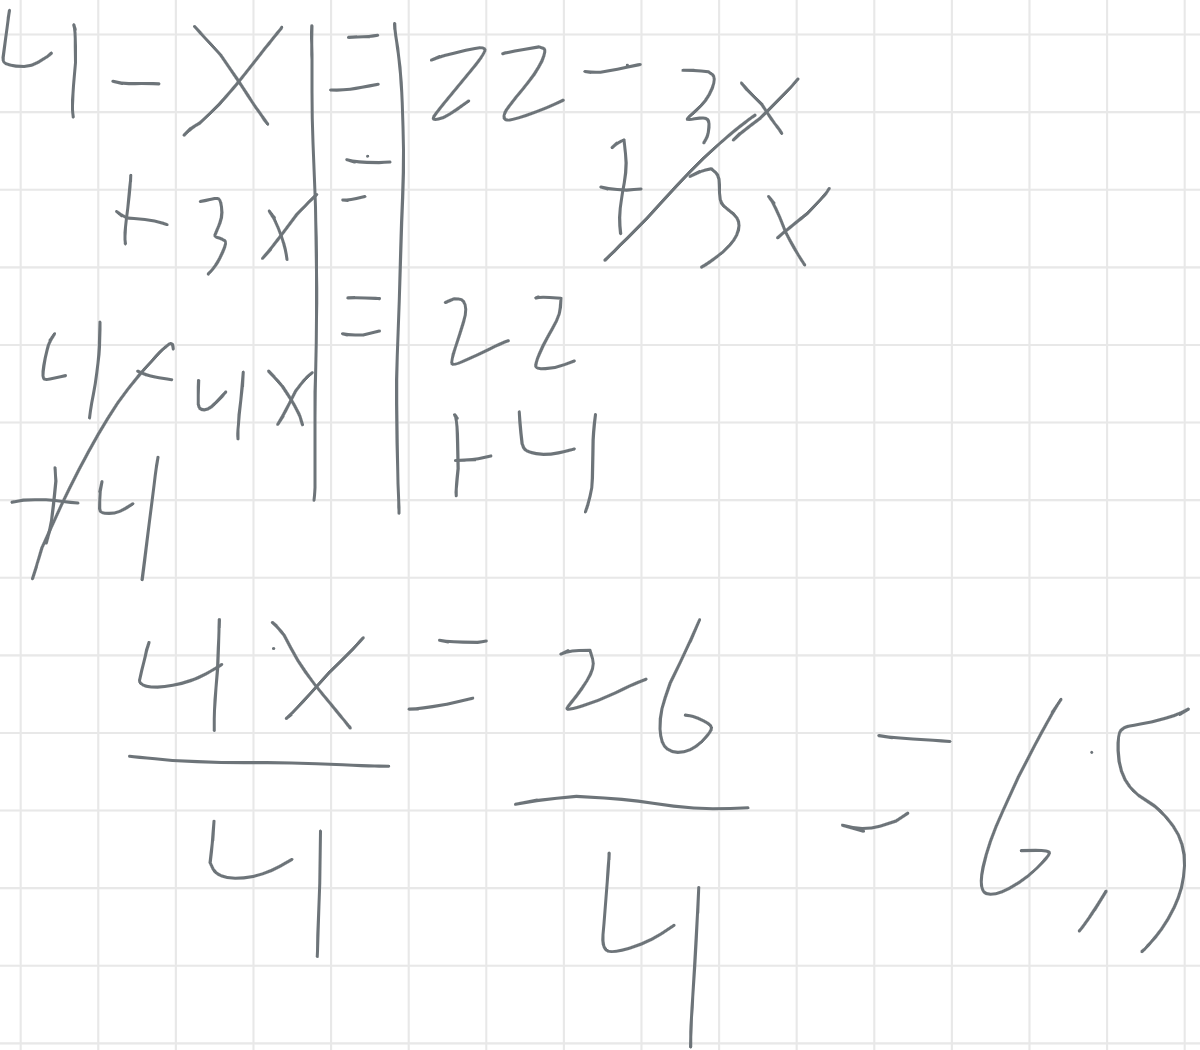 4 - x = 22 - 3x
+ 3x = + 3x
4 - 4x = 22
+ 4 + 4
4x = 26
4 4 = 6,5